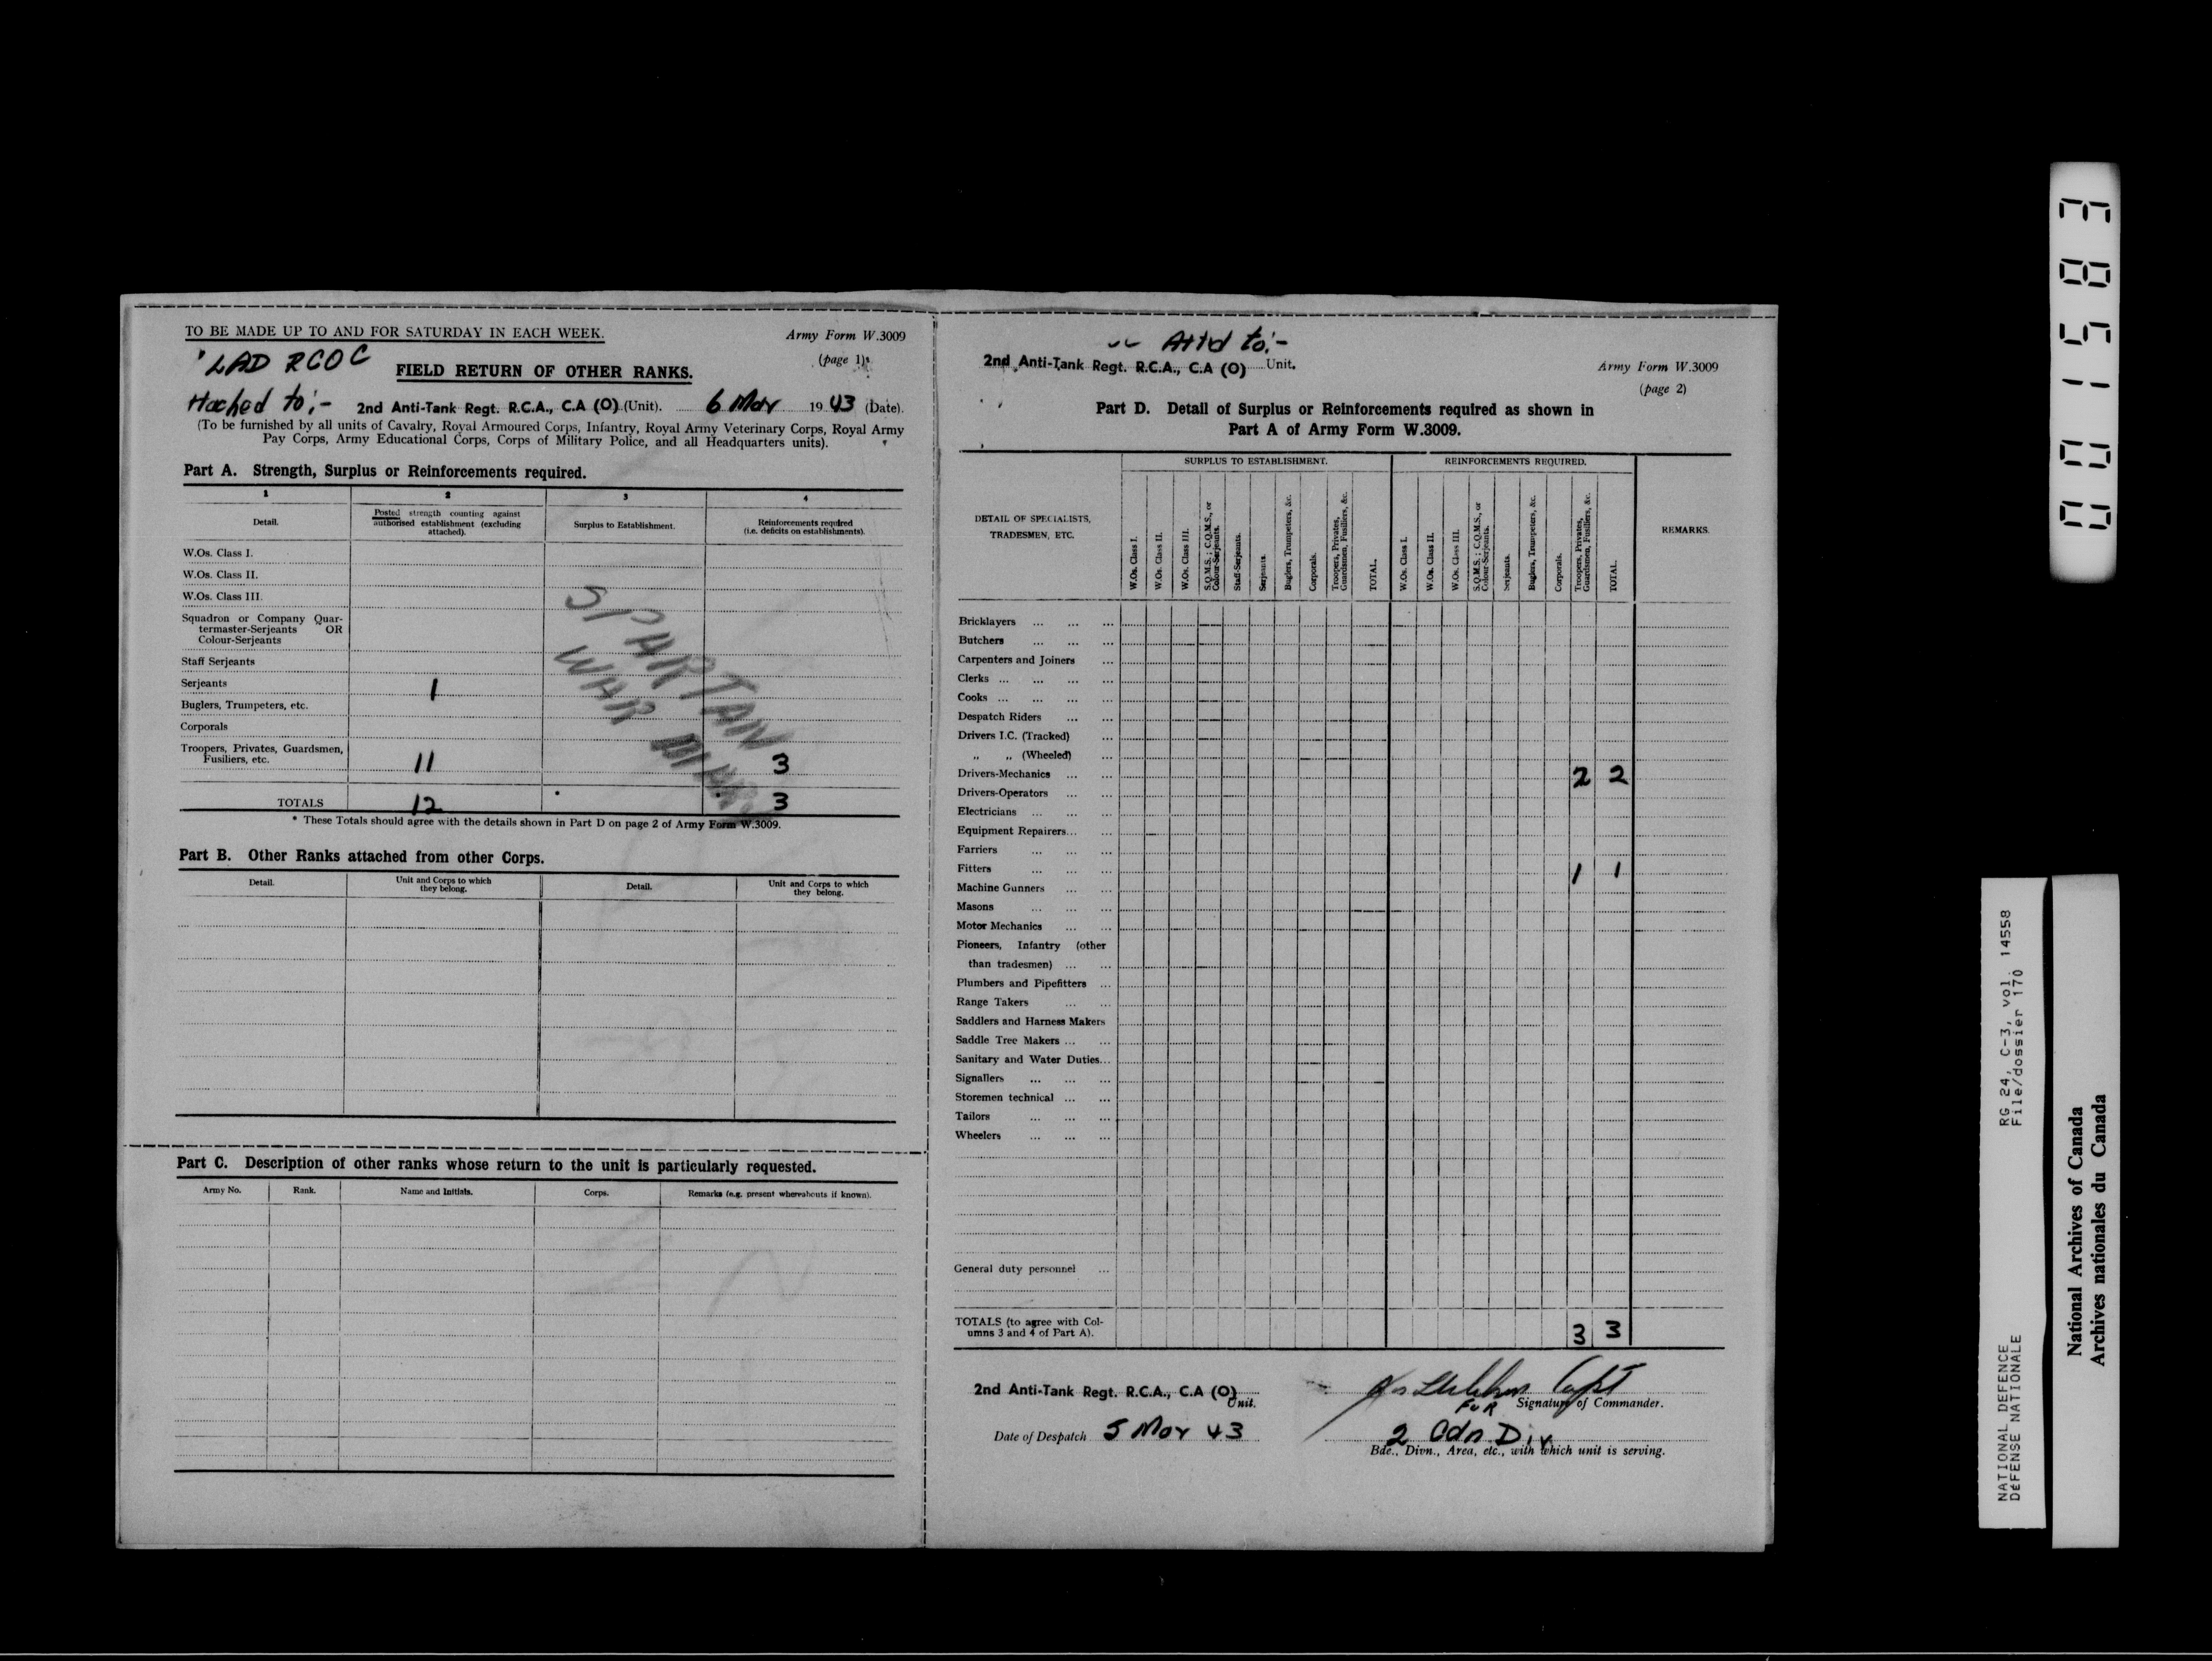 TO BE MADE UP TO AND FOR SATURDAY IN EACH WEEK.
Army Form W.3009
(page 1)
LAD RCOC
FIELD RETURN OF OTHER RANKS.
ttached to:- 2nd Anti-Tank Regt. R.C.A., C.A (O) (Unit). 6 Mar 1943 (Date).
(To be furnished by all units of Cavalry, Royal Armoured Corps, Infantry, Royal Army Veterinary Corps, Royal Army
Pay Corps, Army Educational Corps, Corps of Military Police, and all Headquarters units).
Part A. Strength, Surplus or Reinforcements required.
1 2 3 4
Detail.
Posted strength counting against
authorised establishment (excluding
attached).
Surplus to Establishment.
Reinforcements required
(i.e. deficits on establishments).
W.Os. Class I.
W.Os. Class II.
W.Os. Class III.
Squadron or Company Quar-
termaster-Serjeants OR
Colour-Serjeants
Staff Serjeants
Serjeants 1
Buglers, Trumpeters, etc.
Corporals
Troopers, Privates, Guardsmen,
Fusiliers, etc. 11 3
TOTALS 12 * * 3
SPARTAN
WAR DIARY
* These Totals should agree with the details shown in Part D on page 2 of Army Form W.3009.
Part B. Other Ranks attached from other Corps.
Detail.
Unit and Corps to which
they belong.
Detail.
Unit and Corps to which
they belong.
Part C. Description of other ranks whose return to the unit is particularly requested.
Army No. Rank. Name and Initials. Corps. Remarks (e.g. present whereabouts if known).
Att'd to:-
2nd Anti-Tank Regt. R.C.A., C.A (O) Unit.
Army Form W.3009
(page 2)
Part D. Detail of Surplus or Reinforcements required as shown in
Part A of Army Form W.3009.
DETAIL OF SPECIALISTS,
TRADESMEN, ETC.
SURPLUS TO ESTABLISHMENT.
W.Os. Class I.
W.Os. Class II.
W.Os. Class III.
S.Q.M.S.; C.Q.M.S., or
Colour-Serjeants.
Staff-Serjeants.
Serjeants.
Buglers, Trumpeters, &c.
Corporals.
Troopers, Privates,
Guardsmen, Fusiliers, &c.
TOTAL.
REINFORCEMENTS REQUIRED.
W.Os. Class I.
W.Os. Class II.
W.Os. Class III.
S.Q.M.S.; C.Q.M.S., or
Colour-Serjeants.
Serjeants.
Buglers, Trumpeters, &c.
Corporals.
Troopers, Privates,
Guardsmen, Fusiliers, &c.
TOTAL.
REMARKS.
Bricklayers ... ... ...
Butchers ... ... ...
Carpenters and Joiners ...
Clerks ... ... ... ...
Cooks ... ... ... ...
Despatch Riders ... ...
Drivers I.C. (Tracked) ...
„ „ (Wheeled) ...
Drivers-Mechanics ... ... 2 2
Drivers-Operators ... ...
Electricians ... ... ...
Equipment Repairers... ...
Farriers ... ... ...
Fitters ... ... ... 1 1
Machine Gunners ... ...
Masons ... ... ...
Motor Mechanics ... ...
Pioneers, Infantry (other
than tradesmen) ... ...
Plumbers and Pipefitters ...
Range Takers ... ...
Saddlers and Harness Makers
Saddle Tree Makers ... ...
Sanitary and Water Duties...
Signallers ... ... ...
Storemen technical ... ...
Tailors ... ... ...
Wheelers ... ... ...
General duty personnel ...
TOTALS (to agree with Col-
umns 3 and 4 of Part A). 3 3
2nd Anti-Tank Regt. R.C.A., C.A (O)
Unit.
Capt
FOR Signature of Commander.
Date of Despatch 5 Mar 43
2 Cdn Div
Bde., Divn., Area, etc., with which unit is serving.
001583
NATIONAL DEFENCE RG 24, C-3, vol. 14558
DÉFENSE NATIONALE File/dossier 170
National Archives of Canada
Archives nationales du Canada